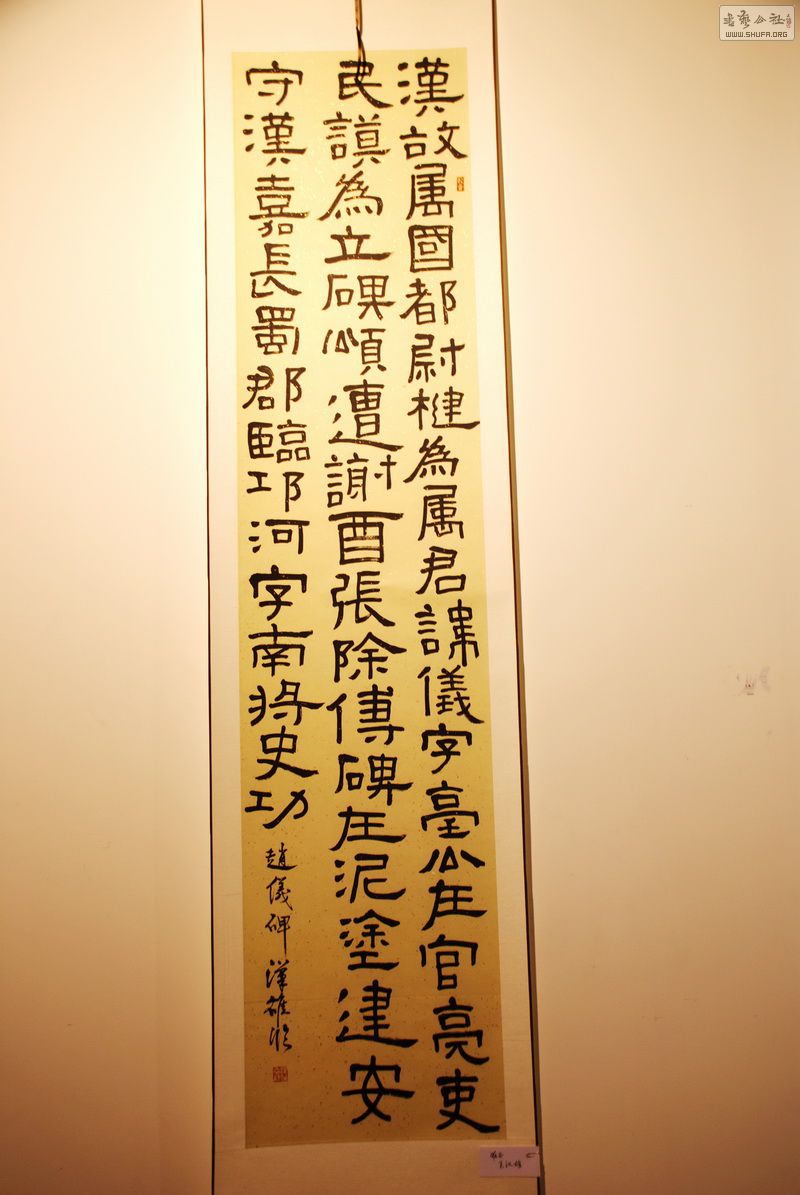 漢故属國都尉楗為属君諱儀字臺公在官亮吏
民謨為立碑頌遭謝酉張除傅碑在泥塗建安
守漢嘉長蜀郡臨邛河字南將史功
趙儀碑 漢雄臨
書藝公社
WWW.SHUFA.ORG